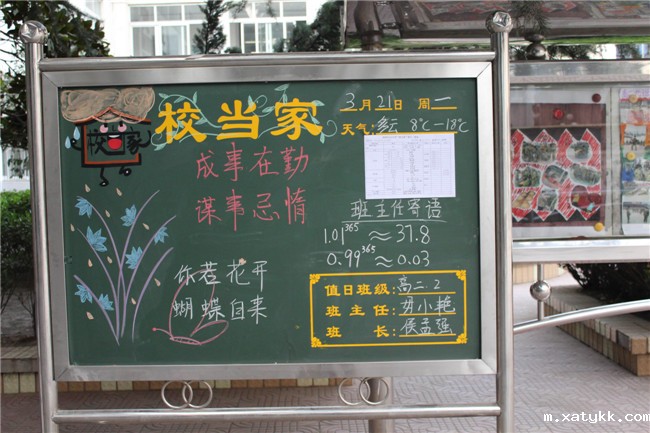 校当家
校当家
3月21日 周一
天气:多云 8℃-18℃
成事在勤
谋事忌惰
班主任寄语
1.01³⁶⁵≈37.8
0.99³⁶⁵≈0.03
你若花开
蝴蝶自来
值日班级:高二.2
班主任:毋小艳
班长:侯孟强
m.xatykk.com